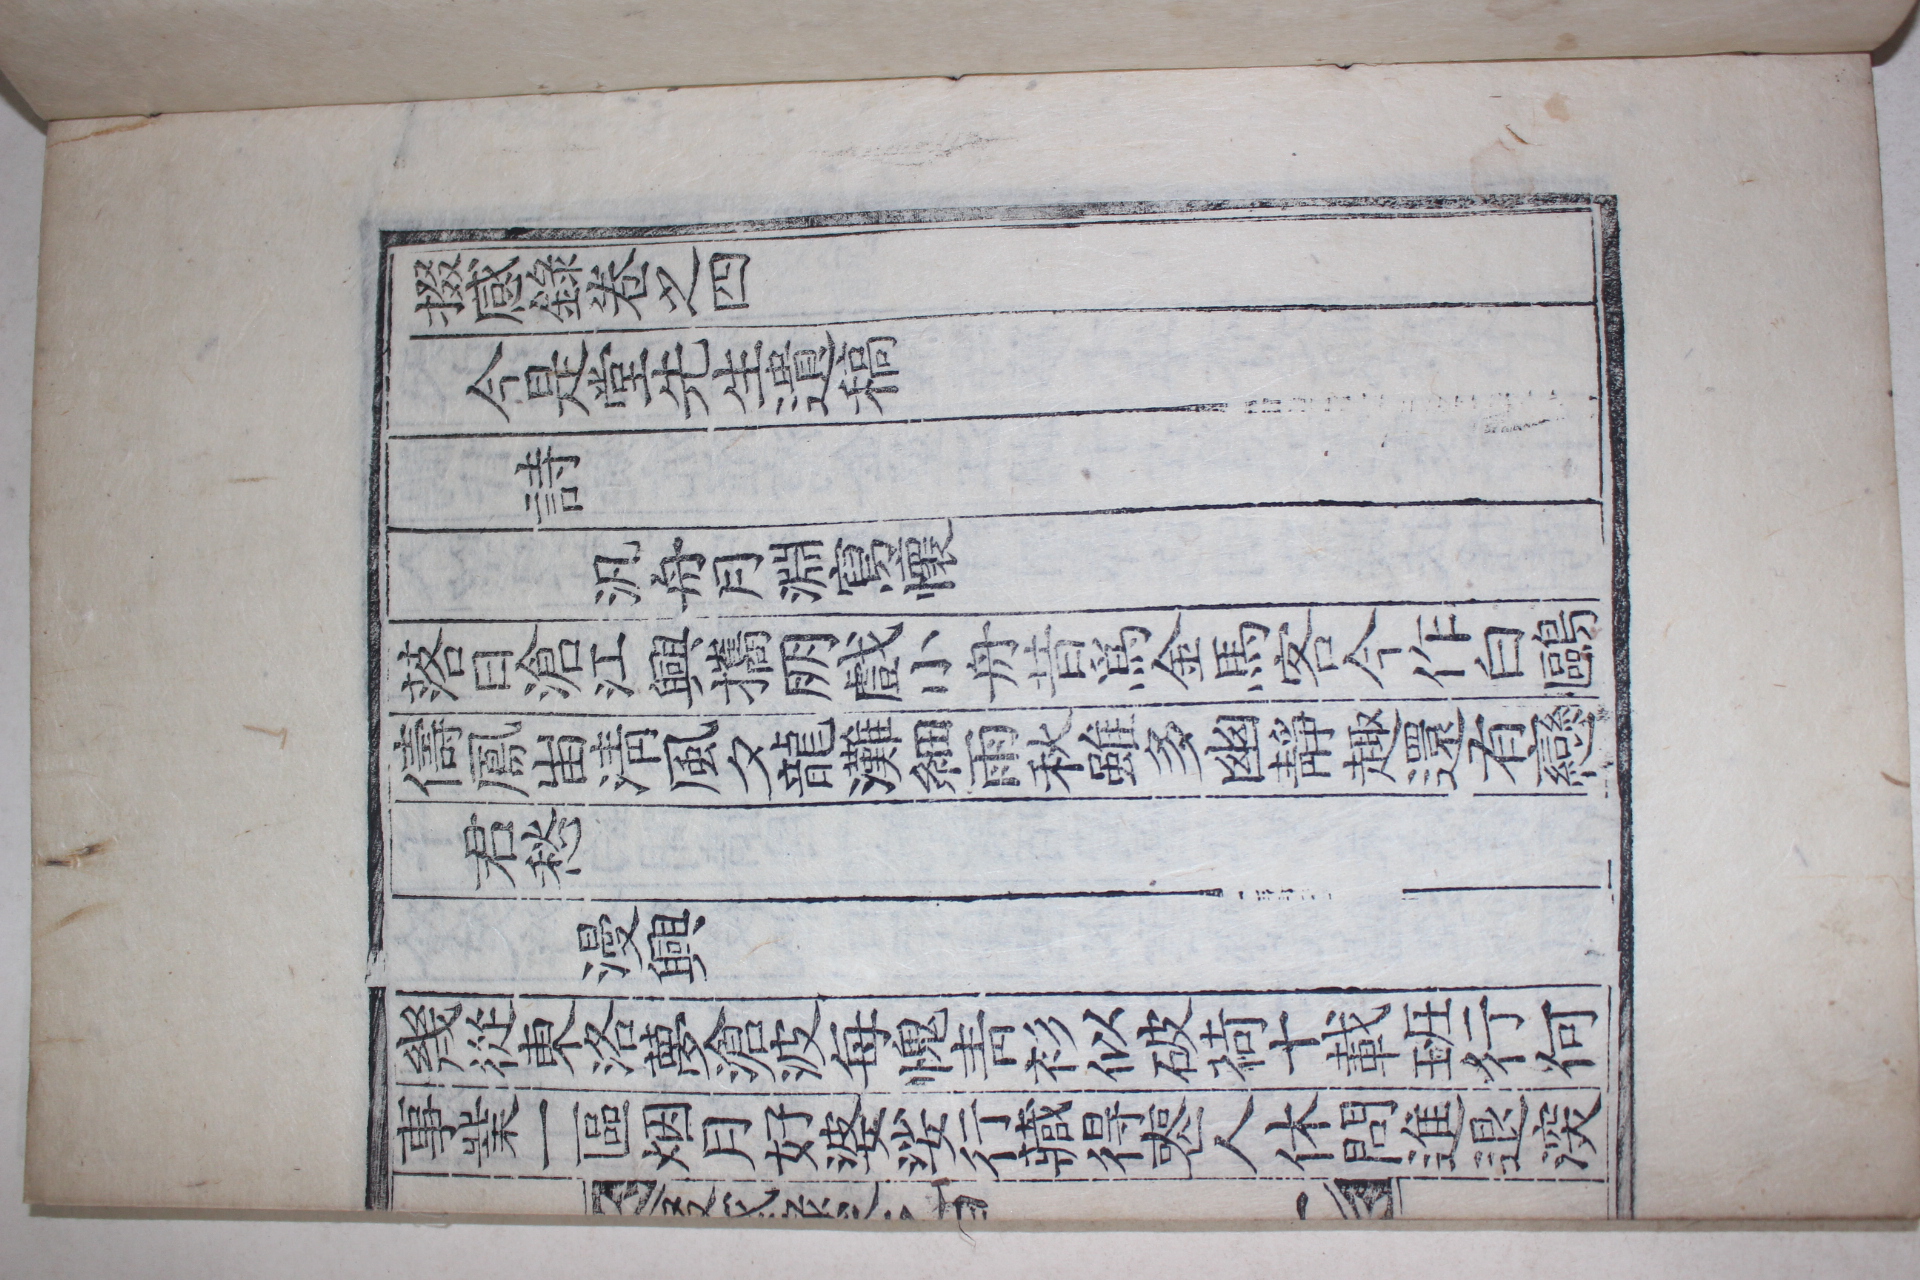 掇感錄卷之四
今是堂先生遺稿
詩
汎舟月淵寫懷
落日滄江興攜朋戱小舟昔爲金馬客今作白鷗
儔鳳峀淸風夕龍灘細雨秋雖多幽靜趣還有戀
君愁
漫興
幾從東洛夢滄波每愧靑衫似破荷十載班行何
事業一區烟月好婆娑行藏得喪人休問進退淡
掇感錄卷之四
一